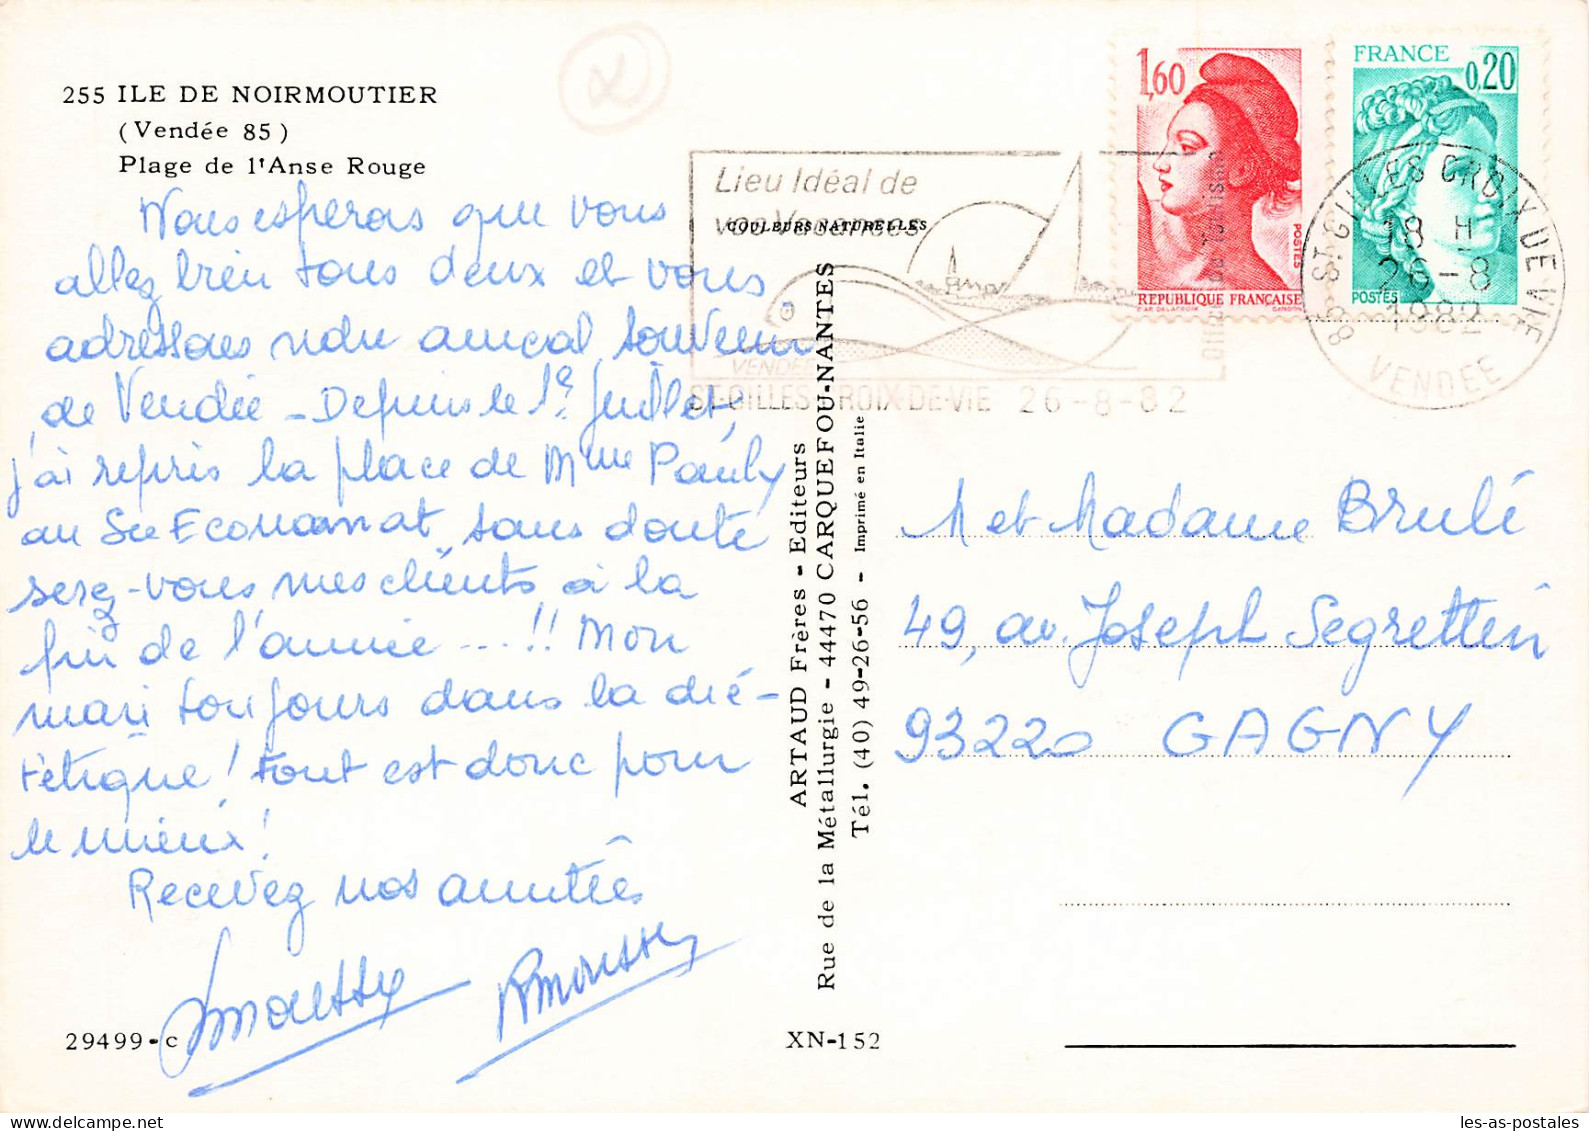 255 ILE DE NOIRMOUTIER
(Vendée 85)
Plage de l'Anse Rouge
Nous esperons que vous
allez bien tous deux et vous
adressons notre amical souvenir
de Vendée - Depuis le 1er Juillet,
j'ai repris la place de Mme Pauly
au Sce Economat, sans doute
serez-vous mes clients à la
fin de l'année ...!! Mon
mari toujours dans la dié-
tétique! Tout est donc pour
le mieux!
Recevez nos amitiés
29499-c
COULEURS NATURELLES
ARTAUD Frères - Editeurs
Rue de la Métallurgie - 44470 CARQUEFOU-NANTES
Tél. (40) 49-26-56 - Imprimé en Italie
XN-152
Lieu Idéal de
vos Vacances
VENDEE
Office du Tourisme
ST-GILLES-CROIX-DE-VIE 26-8-82
1,60
POSTES
REPUBLIQUE FRANÇAISE
D'AP. DELACROIX GANDON
FRANCE
0,20
POSTES
85 ST GILLES CROIX DE VIE
18 H
26-8
1982
VENDEE
M et Madame Brulé
49, av. Joseph Segrettin
93220 GAGNY
les-as-postales